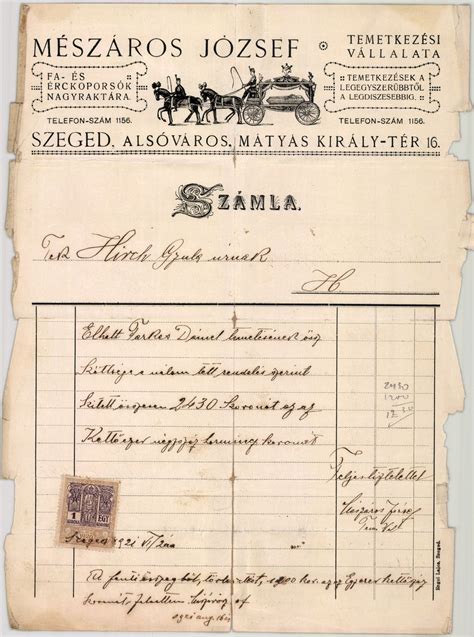 MÉSZÁROS JÓZSEF
TEMETKEZÉSI
VÁLLALATA
FA- ÉS
ÉRCKOPORSÓK
NAGYRAKTÁRA.
TEMETKEZÉSEK A
LEGEGYSZERÜBBTŐL
A LEGDISZESEBBIG.
TELEFON-SZÁM 1156.
TELEFON-SZÁM 1156.
SZEGED, ALSÓVÁROS, MÁTYÁS KIRÁLY-TÉR 16.
SZÁMLA.
Tek Hirch Gyula urnak
H.
Elhalt Farkas Dániel temetésének össz
költsége a nálam tett rendelés szerint
kitett összesen 2430 koronát azaz
Kettőezer négyszáz harminc koronát
2430
1200
Teljes tisztelettel
Mészáros József
1 EGY
Szeged 1921
A fenti összegből, 1200 kor. azaz Egyezer kettőszáz
koronát felvettem Mészáros
1921 aug 16
Engel Lajos, Szeged.